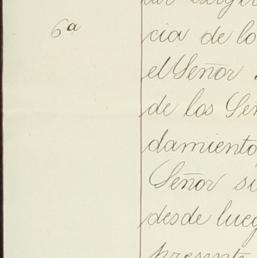 6ª
cia de lo
el Señor
de los Señ
damiento
Señor si
desde lueg
presente